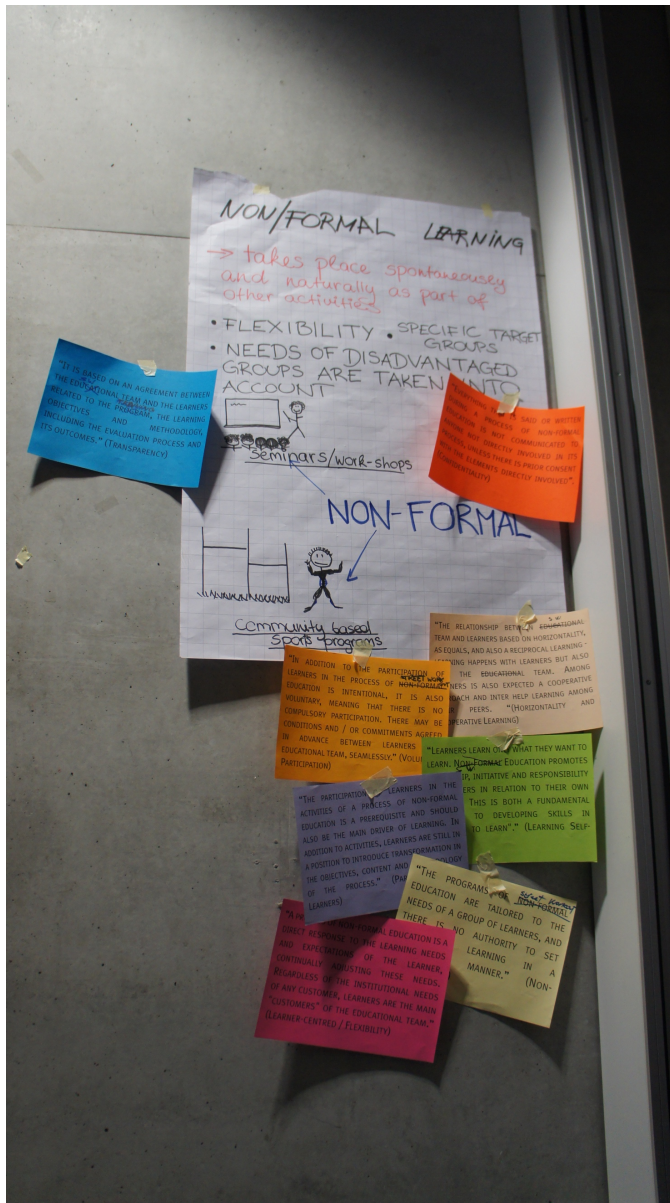 NON/FORMAL LEARNING
→ takes place spontaneousey
and naturally as part of
other activities
• FLEXIBILITY • SPECIFIC TARGET
GROUPS
• NEEDS OF DISADVANTAGED
GROUPS ARE TAKEN INTO
ACCOUNT
Seminars/work-shops
NON-FORMAL
Community based
Sports programs
"IT IS BASED ON AN AGREEMENT BETWEEN
THE EDUCATIONAL TEAM AND THE LEARNERS
RELATED TO THE PROGRAM, THE LEARNING
OBJECTIVES AND METHODOLOGY,
INCLUDING THE EVALUATION PROCESS AND
ITS OUTCOMES." (TRANSPARENCY)
SAID OR WRITTEN
A PROCESS OF NON-FORMAL
EDUCATION IS NOT COMMUNICATED TO
ANYONE NOT DIRECTLY INVOLVED IN ITS
PROCESS, UNLESS THERE IS PRIOR CONSENT
WITH THE ELEMENTS DIRECTLY INVOLVED".
(CONFIDENTIALITY)
S.W
"THE RELATIONSHIP BETWEEN EDUCATIONAL
TEAM AND LEARNERS BASED ON HORIZONTALITY,
AS EQUALS, AND ALSO A RECIPROCAL LEARNING -
HAPPENS WITH LEARNERS BUT ALSO
THE EDUCATIONAL TEAM. AMONG
IS ALSO EXPECTED A COOPERATIVE
AND INTER HELP LEARNING AMONG
PEERS. "(HORIZONTALITY AND
LEARNING)
"IN ADDITION TO THE PARTICIPATION OF
STREET WORK
LEARNERS IN THE PROCESS OF NON-FORMAL
EDUCATION IS INTENTIONAL, IT IS ALSO
VOLUNTARY, MEANING THAT THERE IS NO
COMPULSORY PARTICIPATION. THERE MAY BE
CONDITIONS AND / OR COMMITMENTS AGREED
IN ADVANCE BETWEEN LEARNERS
EDUCATIONAL TEAM, SEAMLESSLY."
PARTICIPATION)
"LEARNERS LEARN WHAT THEY WANT TO
LEARN. NON-FORMAL EDUCATION PROMOTES
INITIATIVE AND RESPONSIBILITY
IN RELATION TO THEIR OWN
THIS IS BOTH A FUNDAMENTAL
TO DEVELOPING SKILLS IN
TO LEARN"." (LEARNING SELF-
"THE PARTICIPATION LEARNERS IN THE
ACTIVITIES OF A PROCESS OF NON-FORMAL
EDUCATION IS A PREREQUISITE AND SHOULD
ALSO BE THE MAIN DRIVER OF LEARNING. IN
ADDITION TO ACTIVITIES, LEARNERS ARE STILL IN
A POSITION TO INTRODUCE TRANSFORMATION IN
THE OBJECTIVES, CONTENT AND
OF THE PROCESS."
LEARNERS)
"THE PROGRAMS NON-FORMAL
EDUCATION ARE TAILORED TO THE
NEEDS OF A GROUP OF LEARNERS, AND
THERE IS NO AUTHORITY TO SET
LEARNING IN A
MANNER." (NON-
OF NON FORMAL EDUCATION IS A
DIRECT RESPONSE TO THE LEARNING NEEDS
AND EXPECTATIONS OF THE LEARNER,
CONTINUALLY ADJUSTING THESE NEEDS.
REGARDLESS OF THE INSTITUTIONAL NEEDS
OF ANY CUSTOMER, LEARNERS ARE THE MAIN
"CUSTOMERS" OF THE EDUCATIONAL TEAM."
(LEARNER-CENTRED / FLEXIBILITY)